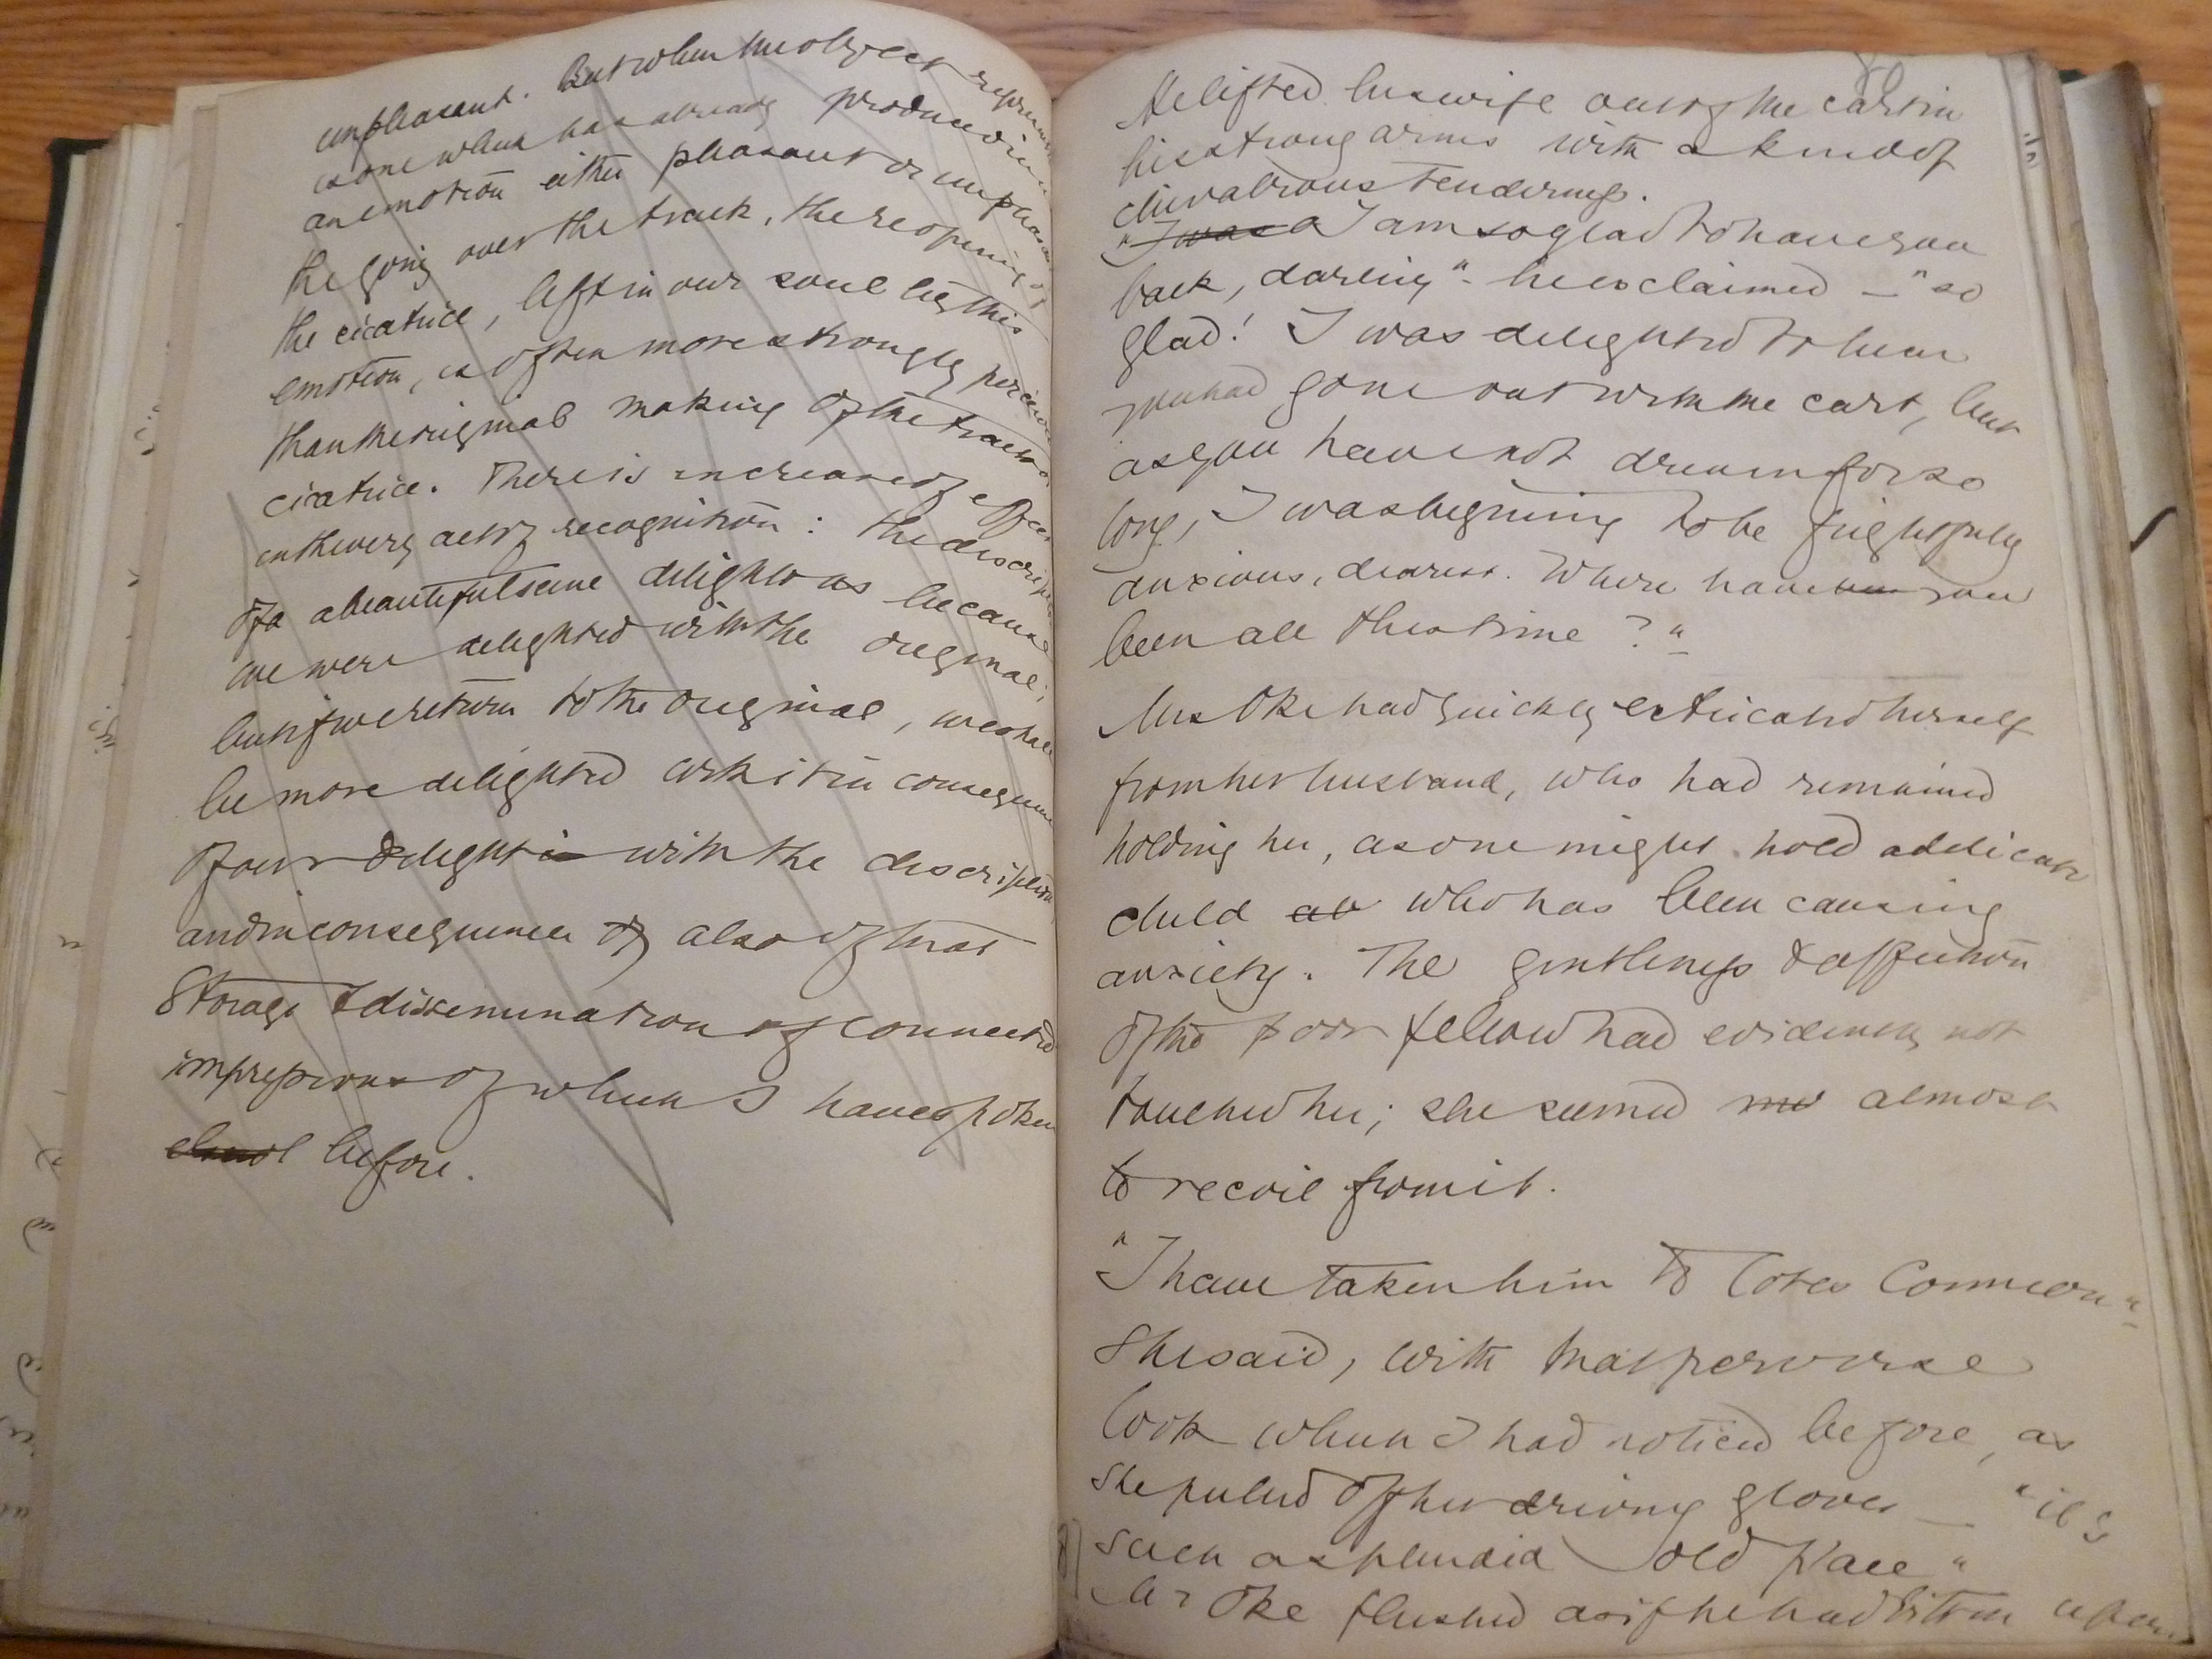 unpleasant. But when the object represented
is one which has already produced in us
an emotion either pleasant or unpleasant
the going over the track, the reopening of
the cicatrice, left in our soul by this
emotion, is often more strongly perceived
than the original making of the track or
cicatrice. There is increase of effect
in the very act of recognition: the description
of a beautiful scene delights us because
we were delighted with the original;
but if we return to the original, we shall
be more delighted with it in consequence
of our delight in with the description
and in consequence of also of that
storage & dissemination of connected
impressions of which I have spoken
before.
He lifted his wife out of the cart in
his strong arms with a kind of
chivalrous tenderness.
"I was a I am so glad to have you
back, darling" - he exclaimed — "so
glad! I was delighted to hear
you had gone out with the cart, but
as you have not driven for so
long, I was beginning to be frightfully
anxious, dearest. Where have been you
been all this time?"
Mrs Oke had quickly extricated herself
from her husband, who had remained
holding her, as one might hold a delicate
child who has been causing
anxiety. The gentleness & affection
of the poor fellow had evidently not
touched her; she seemed almost
to recoil from it.
"I have taken him to Cotes Common"
she said, with that perverse
look which I had noticed before, as
she pulled off her driving gloves — "it's
such a splendid old place"
Mr Oke flushed as if he had bitten upon